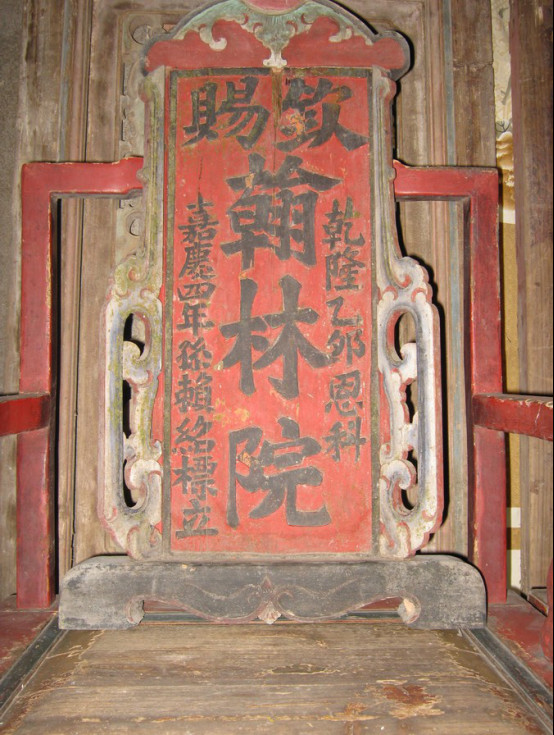 欽賜
乾隆乙卯恩科
翰林院
嘉慶四年孫賴紹標立